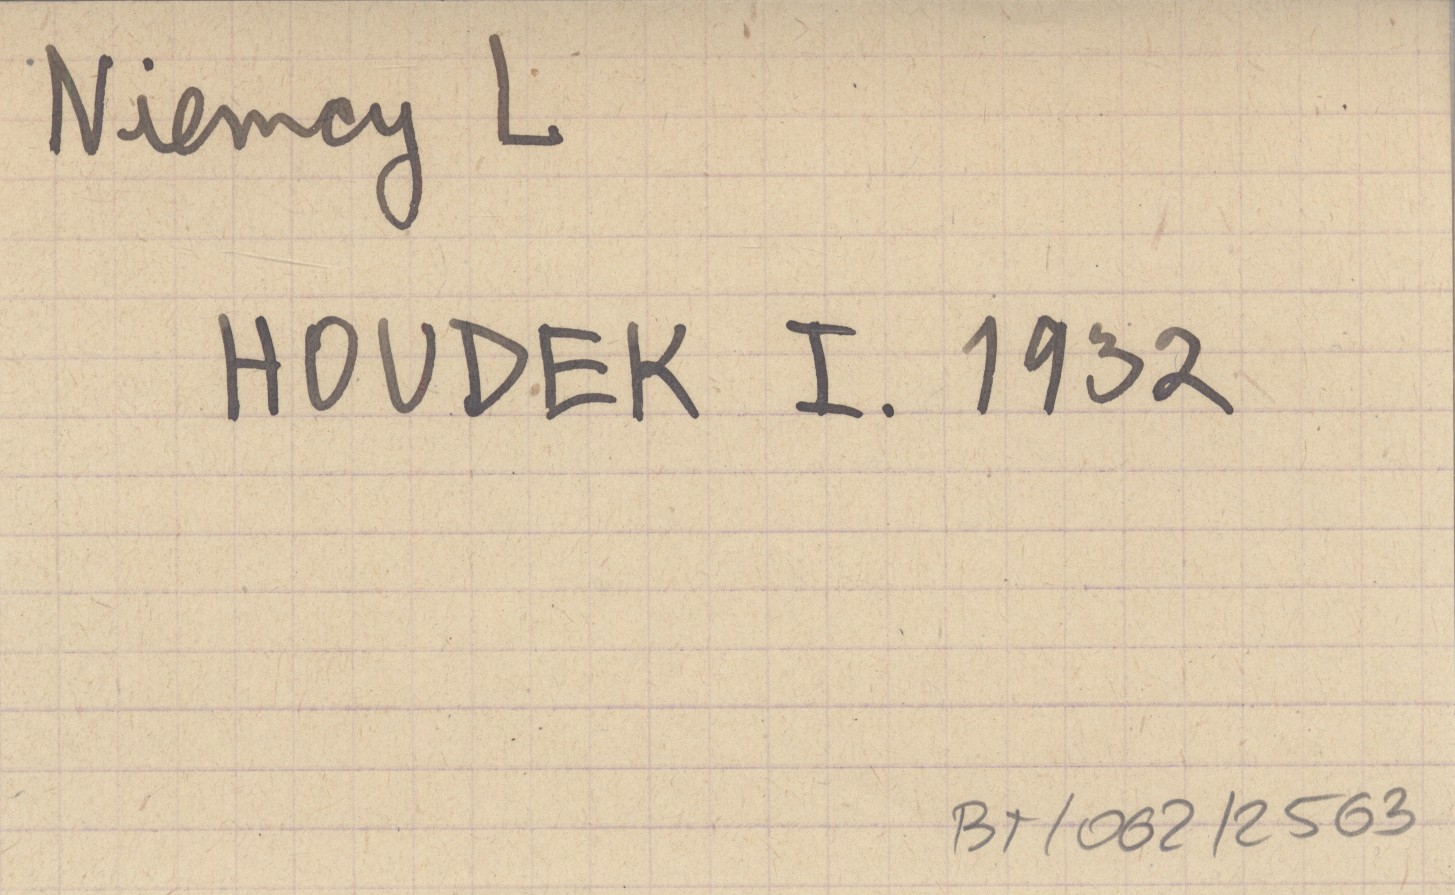 Niemcy L
HOUDEK I. 1932
BT/062/2563